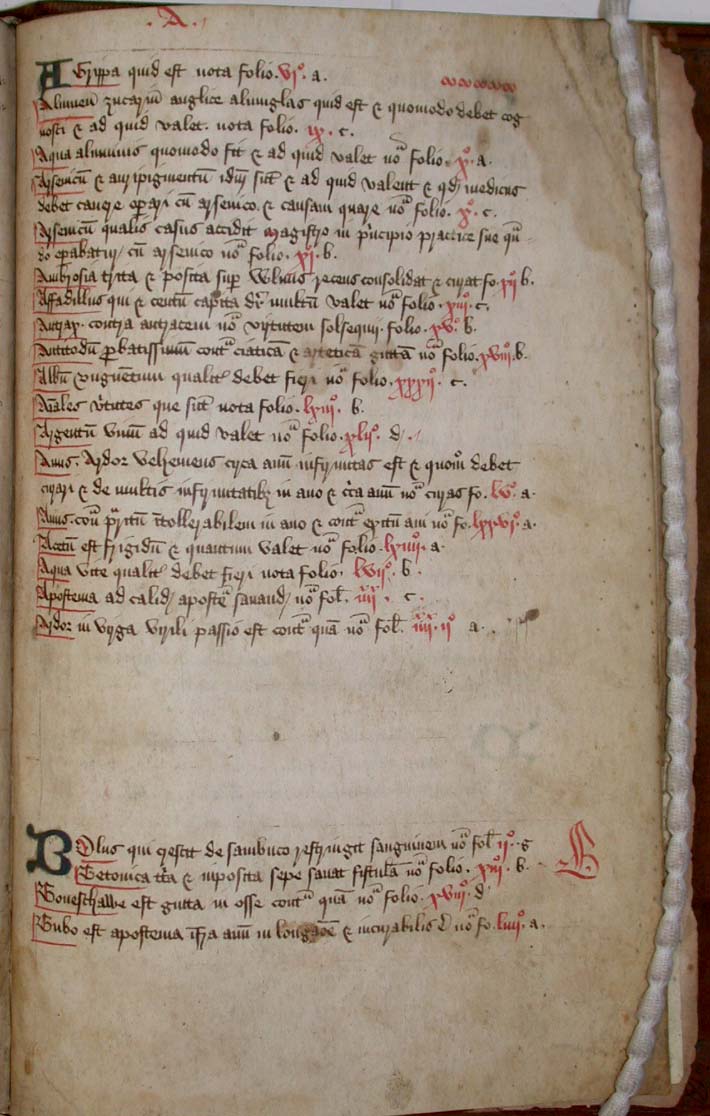 .A.
Agrippa quid est nota folio. vi°. a.
Alumen zucarin anglice alumglas quid est & quomodo debet cog
nosci & ad quid valet. nota folio. ix. c.
Aqua aluminis quomodo fit & ad quid valet noa folio. x°. a.
Arsenicū & auripigmentū idm sūt & ad quid valent & qd medicus
debet cavere opari cū arsenico. & causam quare noa folio. x°. c.
Arsenicū qualis casus accidit magistro in principio practice sue quā
do opabatur cū arsenico noa folio. xi°. b.
Ambrosia trita & posita sup vulnus recens consolidat & curat fo. xii° b.
Affadillus qui & centū capita dr multū valet noa folio. xiii°. c.
Antrax. contra antracem noa virtutem solsequii. folio. xv°. b.
Antitodū probatissimum conta ciaticā & arteticā guttā noa folio. xviii°. b.
Albū unguentum qualit debet fieri noa folio. xxxii°. c.
Anales virtutes que sūt nota folio. lxiii°. b.
Argentū vivū ad quid valet noa folio. xlii°. d.
Anus. Ardor vehemens circa anū infirmitas est & quom° debet
curari & de multis infirmitatibz in ano & circa anū noa curas fo. lv°. a.
Anus. cont pruritū intollerabilem in ano & conta exitū ani noa fo. lxxvi°. a.
Acetū est frigidū & quantum valet noa folio. lxiiii°. a.
Aqua vite qualit debet fieri nota folio. lvii°. b.
Apostema ad calid apostema sanand noa fol. iiii. c.
Ardor in virga virili passio est conta quā noa fol. ii° a.
Bolus qui crescit de sambuco restringit sanguinem noa fol ii°. g
Betonica trita & inposita sepe sanat fistulā noa folio. xiii°. b. B
Boneschawe est gutta in osse conta quā noa folio. xviii°. d
Bubo est apostema infra anū in longaone & incurabilis noa fo. liiii°. a.